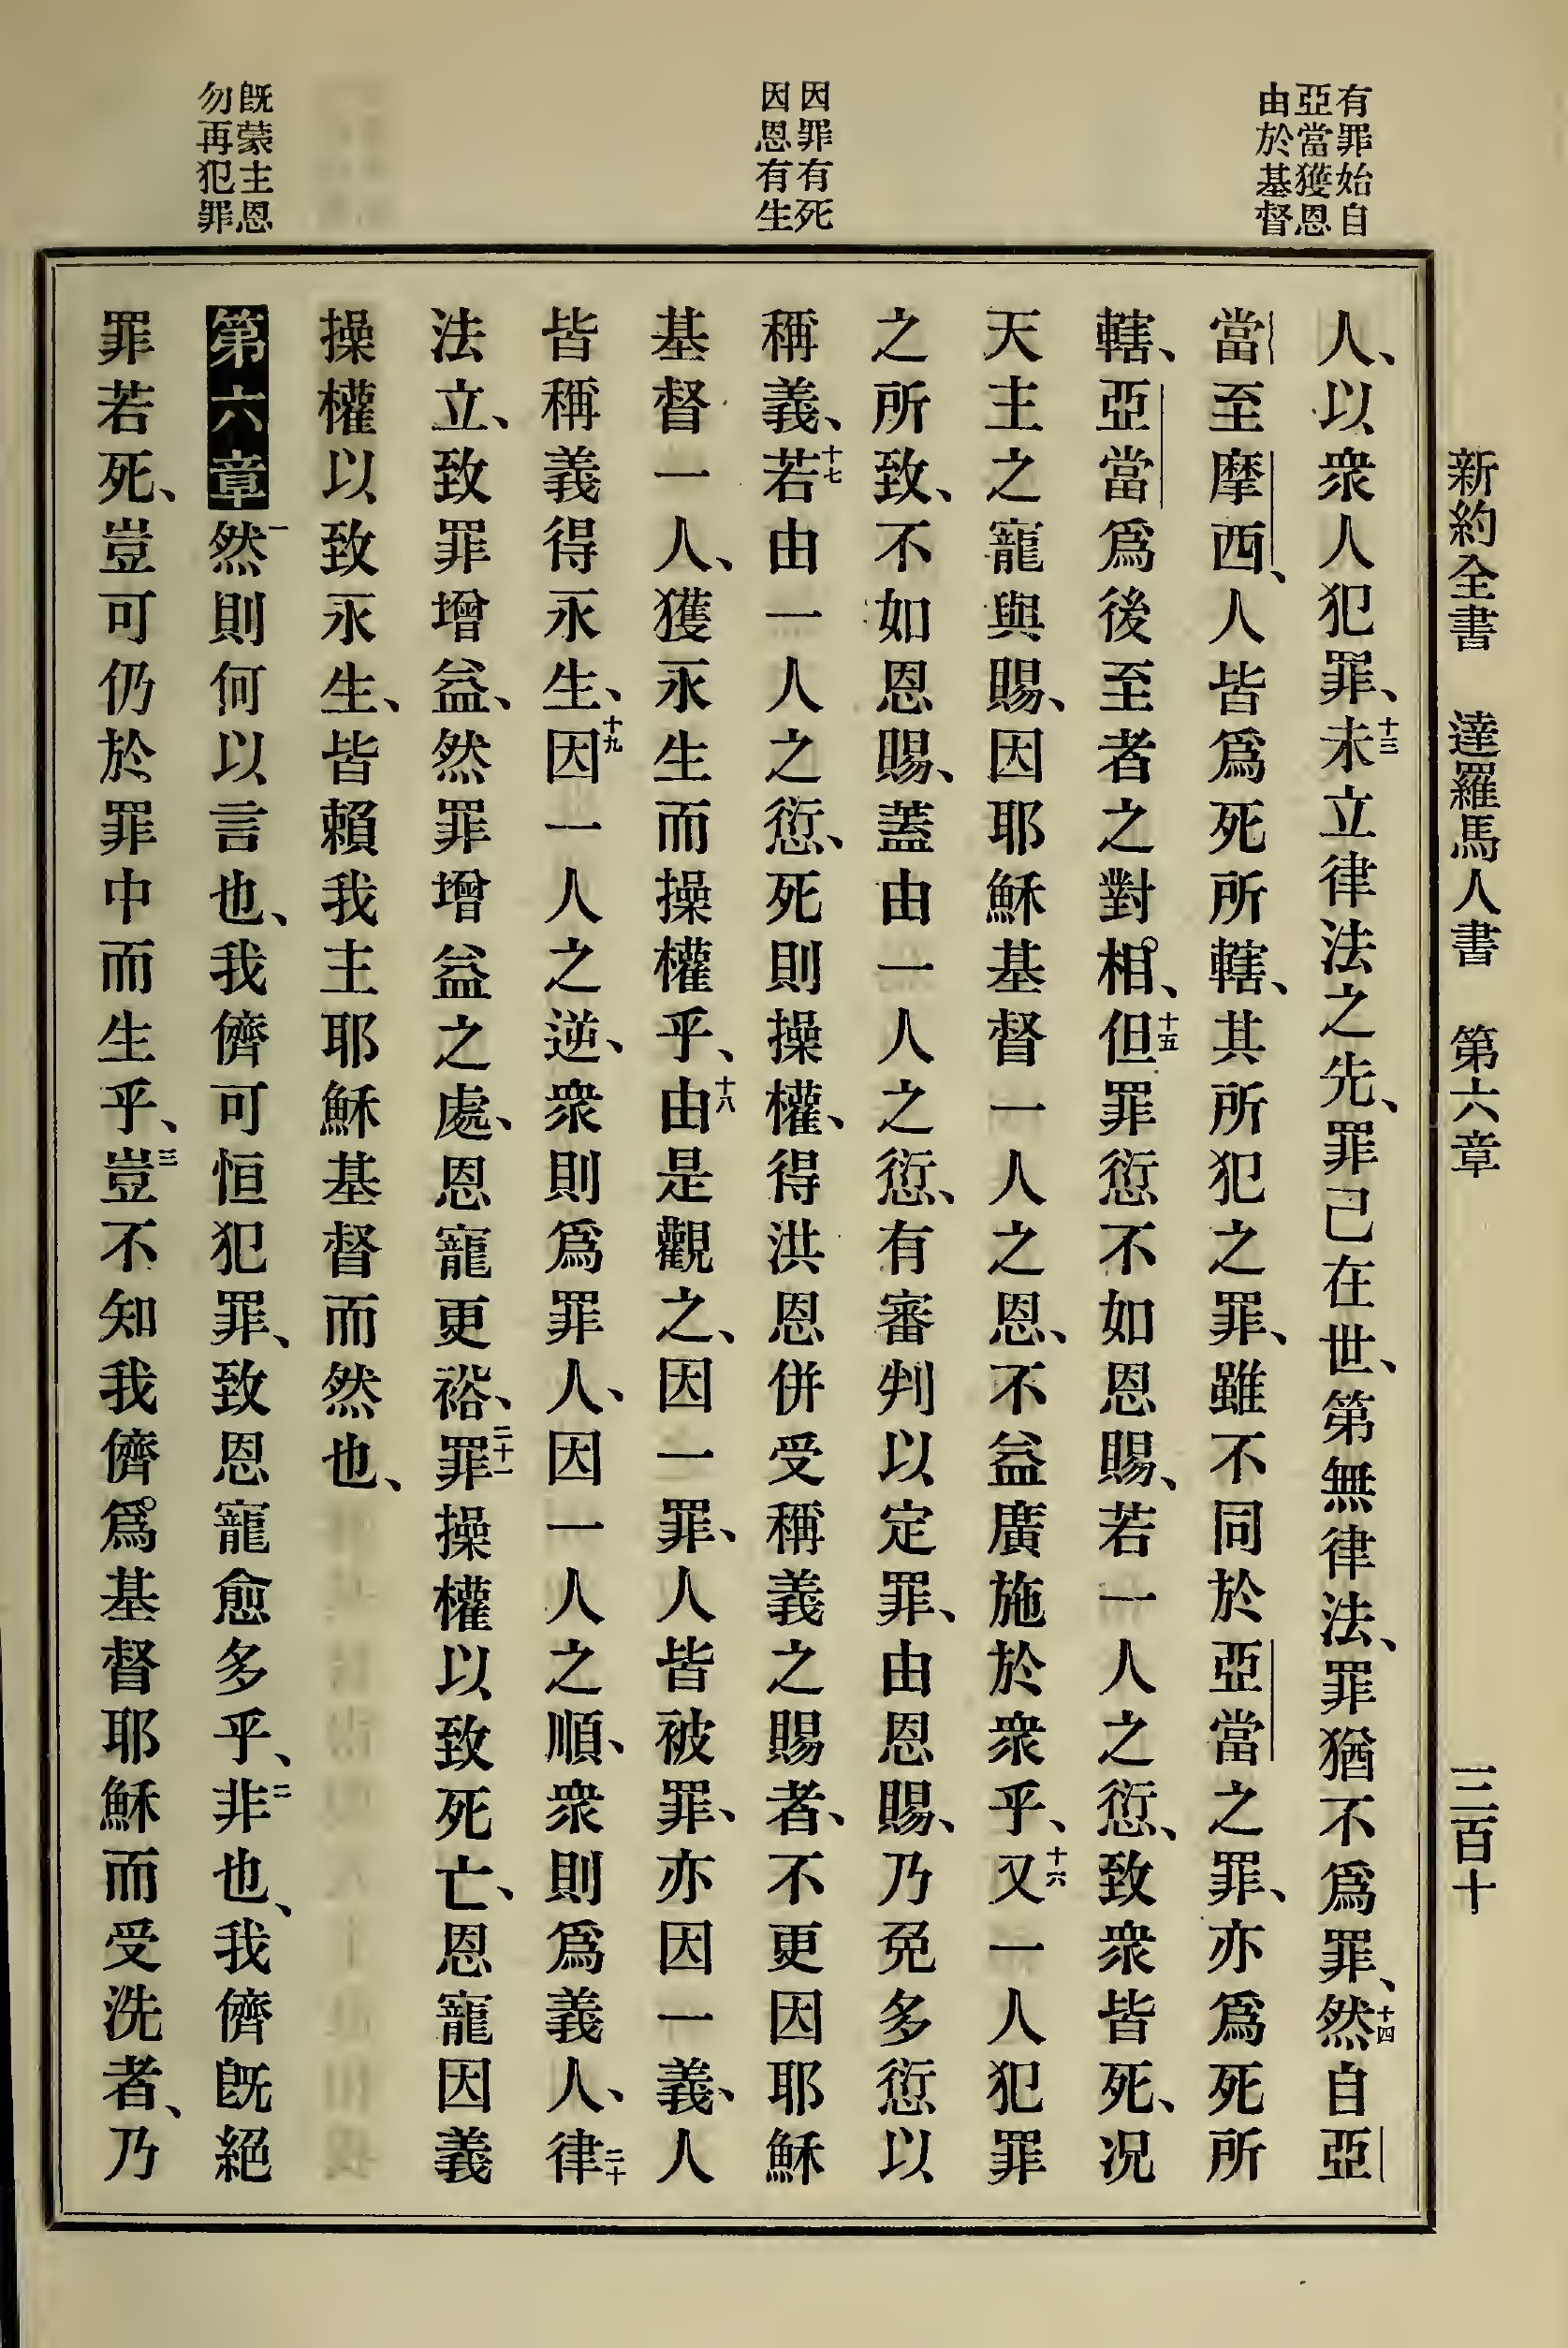 新約全書 達羅馬人書 第六章 三百十
有罪始自
亞當獲恩
由於基督
因罪有死
因恩有生
旣蒙主恩
勿再犯罪
人、以衆人犯罪、十三未立律法之先、罪己在世、第無律法、罪猶不爲罪、十四然自亞
當至摩西、人皆爲死所轄、其所犯之罪、雖不同於亞當之罪、亦爲死所
轄、亞當爲後至者之對相、十五但罪愆不如恩賜、若一人之愆、致衆皆死、况
天主之寵與賜、因耶穌基督一人之恩、不益廣施於衆乎、十六又一人犯罪
之所致、不如恩賜、蓋由一人之愆、有審判以定罪、由恩賜、乃免多愆以
稱義、十七若由一人之愆、死則操權、得洪恩併受稱義之賜者、不更因耶穌
基督一人、獲永生而操權乎、十八由是觀之、因一罪、人皆被罪、亦因一義、人
皆稱義得永生、十九因一人之逆、衆則爲罪人、因一人之順、衆則爲義人、二十律
法立、致罪增益、然罪增益之處、恩寵更裕、二十一罪操權以致死亡、恩寵因義
操權以致永生、皆賴我主耶穌基督而然也、
第六章 一然則何以言也、我儕可恒犯罪、致恩寵愈多乎、二非也、我儕旣絕
罪若死、豈可仍於罪中而生乎、三豈不知我儕爲基督耶穌而受洗者、乃